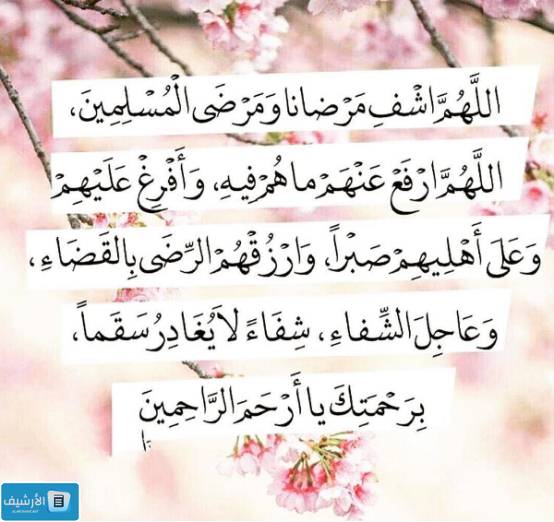 اللَّهُمَّ اشْفِ مَرْضانا وَمَرْضَى الْمُسْلِمِينَ،
اللَّهُمَّ ارْفَعْ عَنْهَمْ ما هُمْ فِيهِ، وَأَفْرِغْ عَلَيْهِمْ
وَعَلَى أَهْلِيهِمْ صَبْراً، وَارْزُقْهُمْ الرِّضَى بِالقَضَاءِ،
وَعَاجِلَ الشِّفاءِ، شِفَاءً لاَ يُغَادِرُ سَقَماً،
بِرَحْمَتِكَ يا أَرْحَمَ الرَّاحِمِينَ
الأرشيف